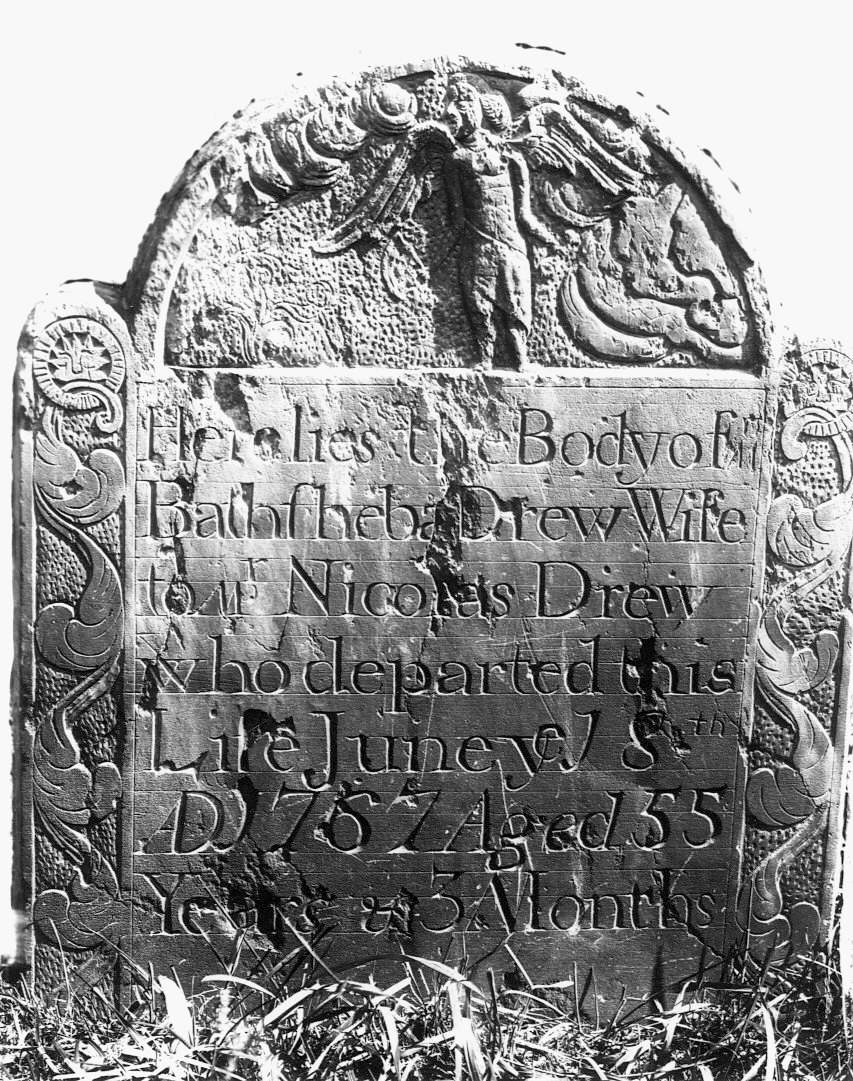 Here lies the Body of Mrs
Bathſheba Drew Wife
to Mr Nicolas Drew
who departed this
Life June ye 18th
AD 1767 Aged 55
Years & 3 Months